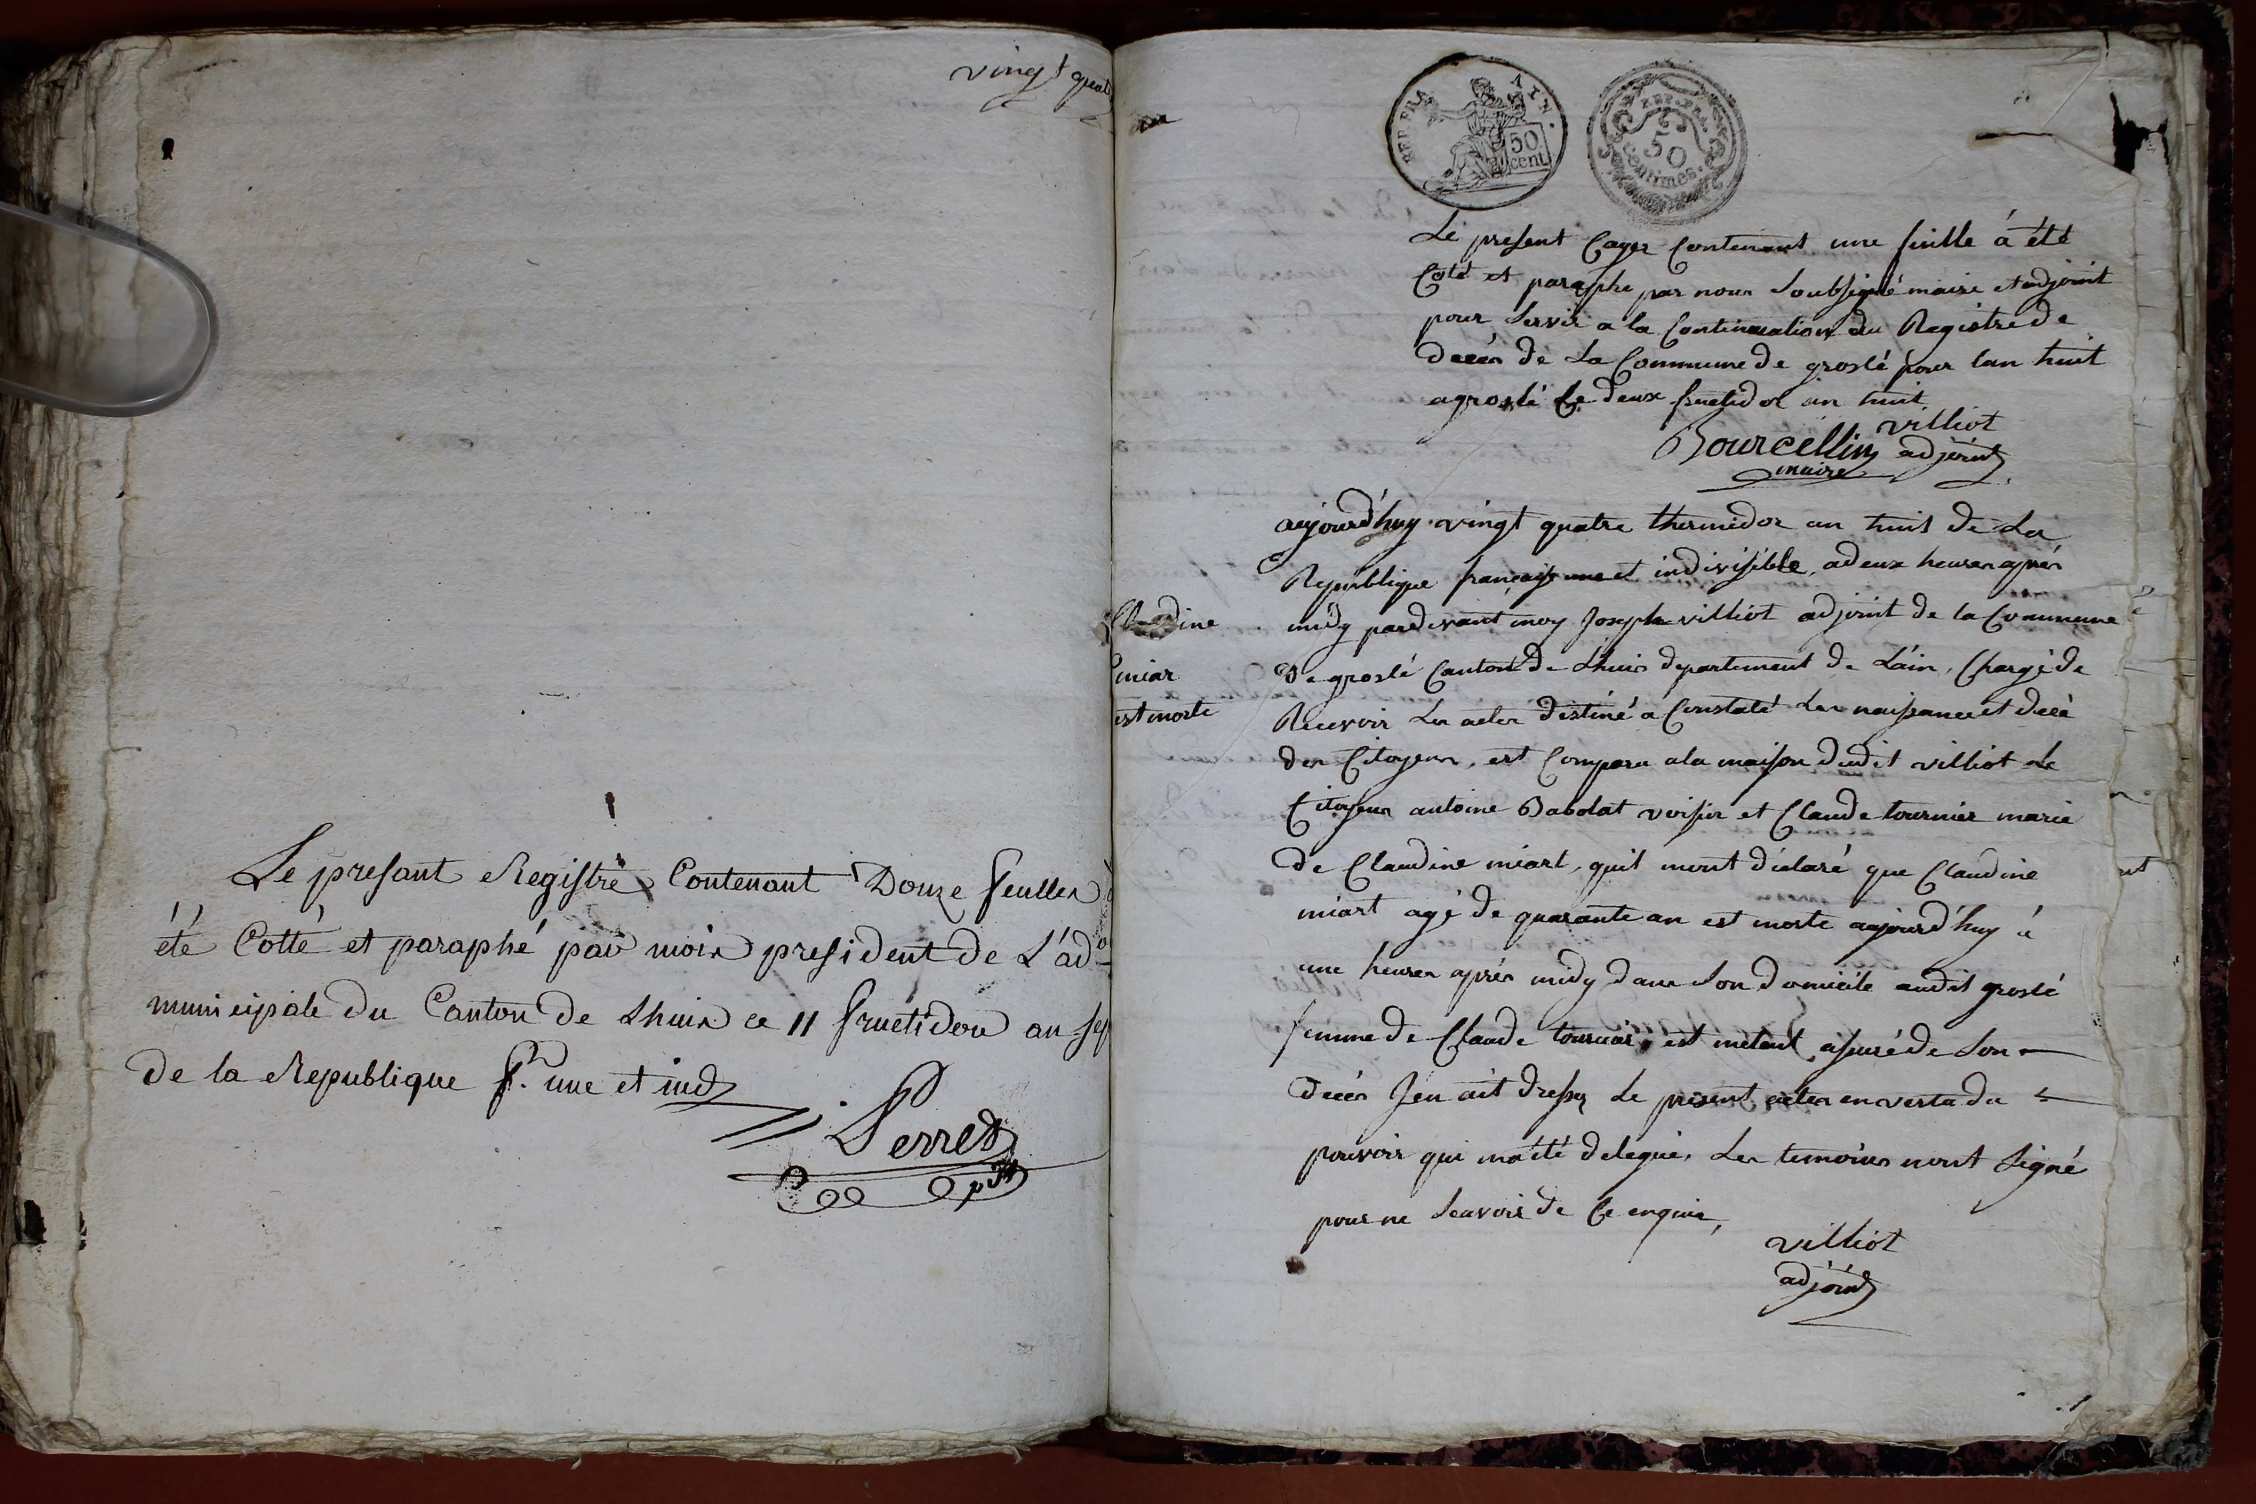 vingt quat
Le presant Registre Contenant Douze feuilles à
été Cotté et paraphé par moix president de L'ad.on
municipale du Canton de Lhuix ce 11 fructidor an sep
de la Republique f. une et ind
Perret
pdt
REP. FRA.
AIN.
50
cent.
REP. FRA.
50
centimes.
Le present Cayer Contenant une feuille á été
Coté et paraphe par nous Soubsigné maire et adjoint
pour Servir a la Continuation du Registre de
deces de La Commune de groslé pour lan huit
a groslé le deux fructidor an huit
villiot
Bourcellin adjoint
maire
aujourd'huy vingt quatre thermidor an huit de La
Republique françaisse une et indivisible, a deux heures aprés
Claudine
midy pardevant moy Joseph villiot adjoint de la Commune
miar
de groslé Canton de Lhuis departement de Láin, Chargé de
est morte
Recevoir Les actes destiné a Constaté Les naissance et decé
des Citoyens, est Comparu a la maison dudit villiot Le
Citoyens antoine Babolat voisin et Claude tournier marie
de Claudine miart, quil mont déclaré que Claudine
miart agé de quarante an est morte aujourd'huy á
une heures aprés midy dans Son domicile audit groslé
femme de Claude tournier, est metant assuré de Son
decés Jen ait dressez Le present actes en vertu du
pouvoir qui ma été delegué, Les temoins nont Signé
pour ne Scavoir de Ce enquis,
villiot
adjoint